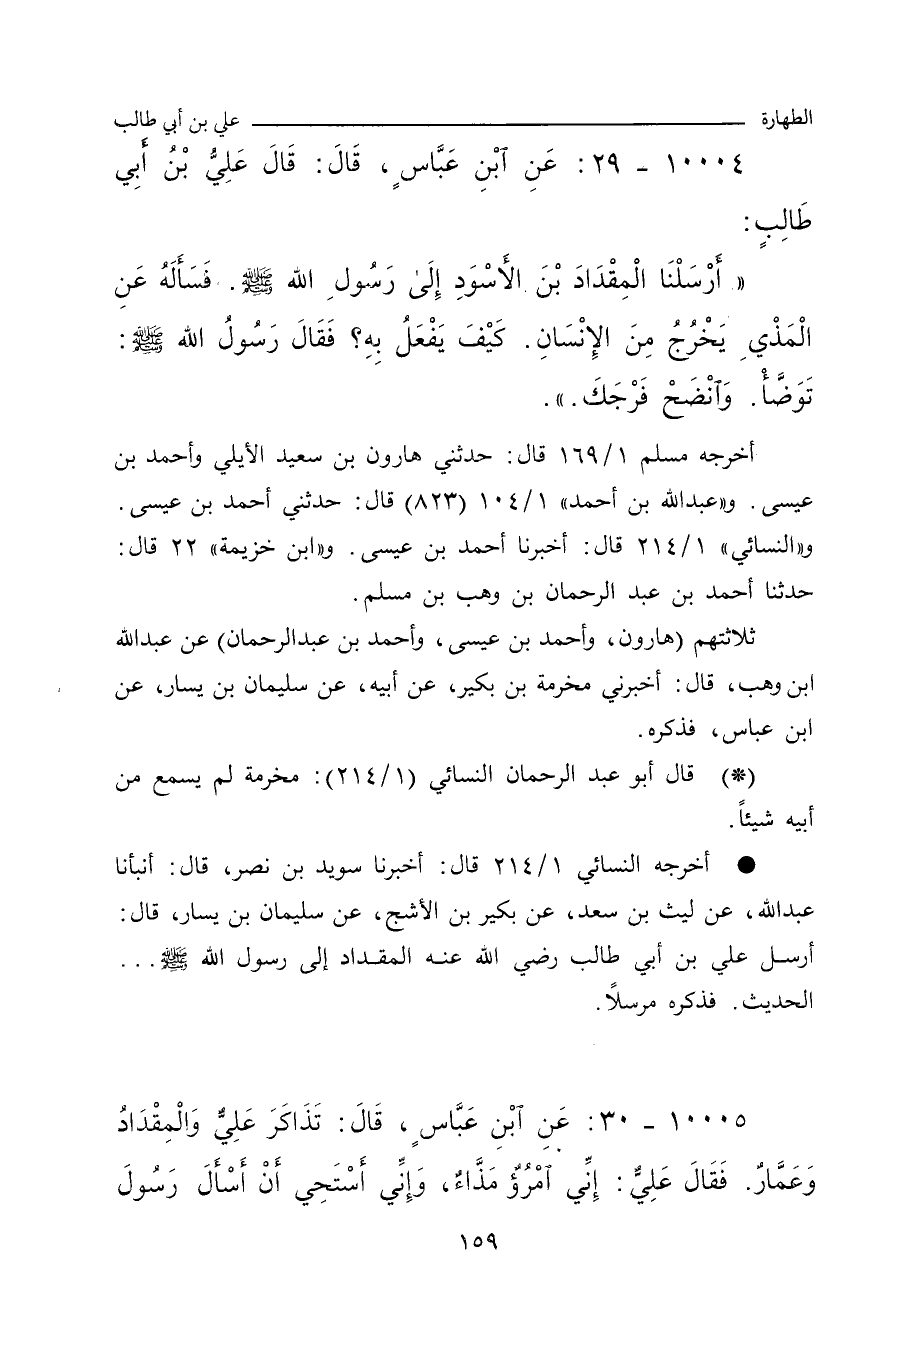 الطهارة علي بن أبي طالب
١٠٠٠٤ ـ ٢٩ : عَنِ ٱبْنِ عَبَّاسٍ ، قَالَ : قَالَ عَلِيُّ بْنُ أَبِي
طَالِبٍ :
« أَرْسَلْنَا الْمِقْدَادَ بْنَ الأَسْوَدِ إِلَىٰ رَسُولِ الله ﷺ . فَسَأَلَهُ عَنِ
الْمَذْيِ يَخْرُجُ مِنَ الإِنْسَانِ . كَيْفَ يَفْعَلُ بِهِ؟ فَقَالَ رَسُولُ الله ﷺ :
تَوَضَّأْ . وَٱنْضَحْ فَرْجَكَ . » .
أخرجه مسلم ١٦٩/١ قال : حدثني هارون بن سعيد الأيلي وأحمد بن
عيسى . و«عبدالله بن أحمد» ١٠٤/١ (٨٢٣) قال : حدثني أحمد بن عيسى .
و«النسائي» ٢١٤/١ قال : أخبرنا أحمد بن عيسى . و«ابن خزيمة» ٢٢ قال :
حدثنا أحمد بن عبد الرحمان بن وهب بن مسلم .
ثلاثتهم (هارون ، وأحمد بن عيسى ، وأحمد بن عبدالرحمان) عن عبدالله
ابن وهب ، قال : أخبرني مخرمة بن بكير ، عن أبيه ، عن سليمان بن يسار ، عن
ابن عباس ، فذكره .
(*) قال أبو عبد الرحمان النسائي (٢١٤/١) : مخرمة لم يسمع من
أبيه شيئاً .
● أخرجه النسائي ٢١٤/١ قال : أخبرنا سويد بن نصر ، قال : أنبأنا
عبدالله ، عن ليث بن سعد ، عن بكير بن الأشج ، عن سليمان بن يسار ، قال :
أرسل علي بن أبي طالب رضي الله عنه المقداد إلى رسول الله ﷺ . . .
الحديث . فذكره مرسلاً .
١٠٠٠٥ ـ ٣٠ : عَنِ ٱبْنِ عَبَّاسٍ ، قَالَ : تَذَاكَرَ عَلِيٌّ وَالْمِقْدَادُ
وَعَمَّارٌ . فَقَالَ عَلِيٌّ : إِنِّي ٱمْرُؤٌ مَذَّاءٌ ، وَإِنِّي أَسْتَحِي أَنْ أَسْأَلَ رَسُولَ
١٥٩